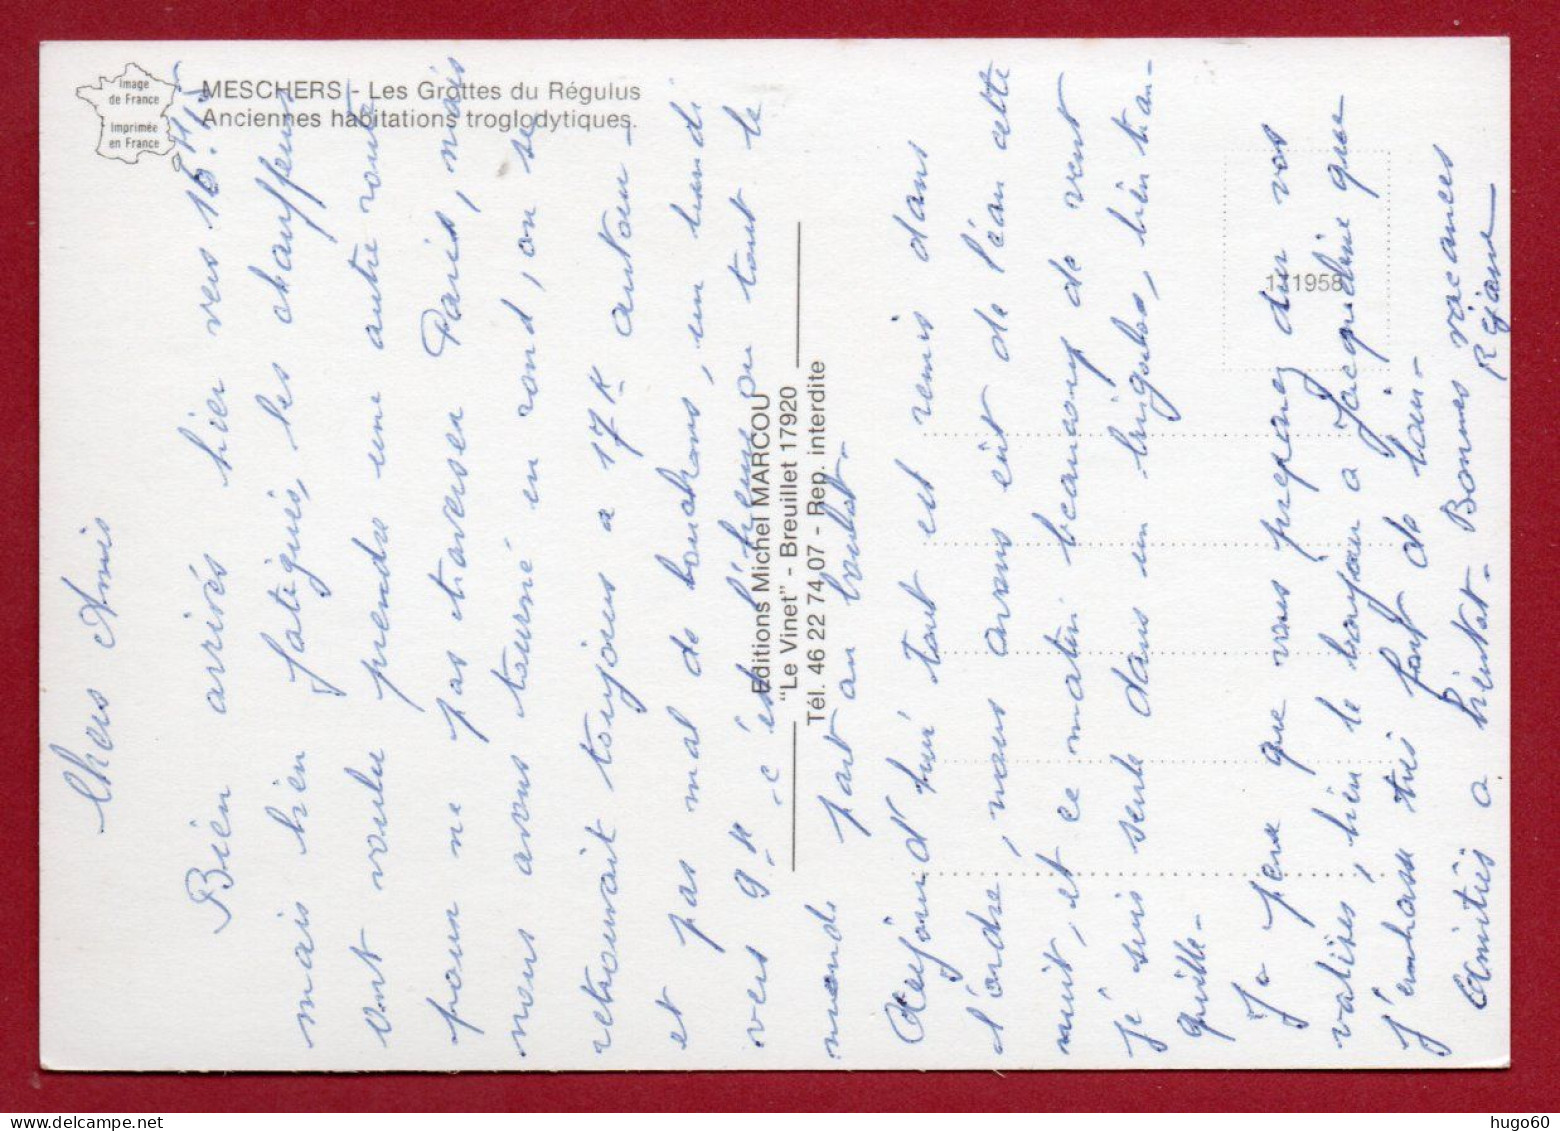 Image
de France
Imprimée
en France
MESCHERS - Les Grottes du Régulus
Anciennes habitations troglodytiques.
Chers Amis
Bien arrivés hier vers 16.H 15
mais bien fatigués, les chauffeurs
ont voulu prendre une autre route
pour ne pas traverser Paris, mais
nous avons tourné en rond, on se
retrouvait toujours a 17 K autour -
et pas mal de bouchons, un lundi
vers 9H c'est l'heure ou tout le
monde part au boulot -
Aujourd'hui tout est remis dans
l'ordre, nous avons eût de l'eau cette
nuit, et ce matin beaucoup de vent
je suis seule dans un , bien tran-
quille -
Je pense que vous preparez vos
valises, bien le bonjour a Jacqueline que
j'embrasse très fort de loin -
Amitiés a bientot - Bonnes vacances
Réjane
Editions Michel MARCOU
"Le Vinet" - Breuillet 17920
Tél. 46 22 74 07 - Rep. interdite
111958
hugo60